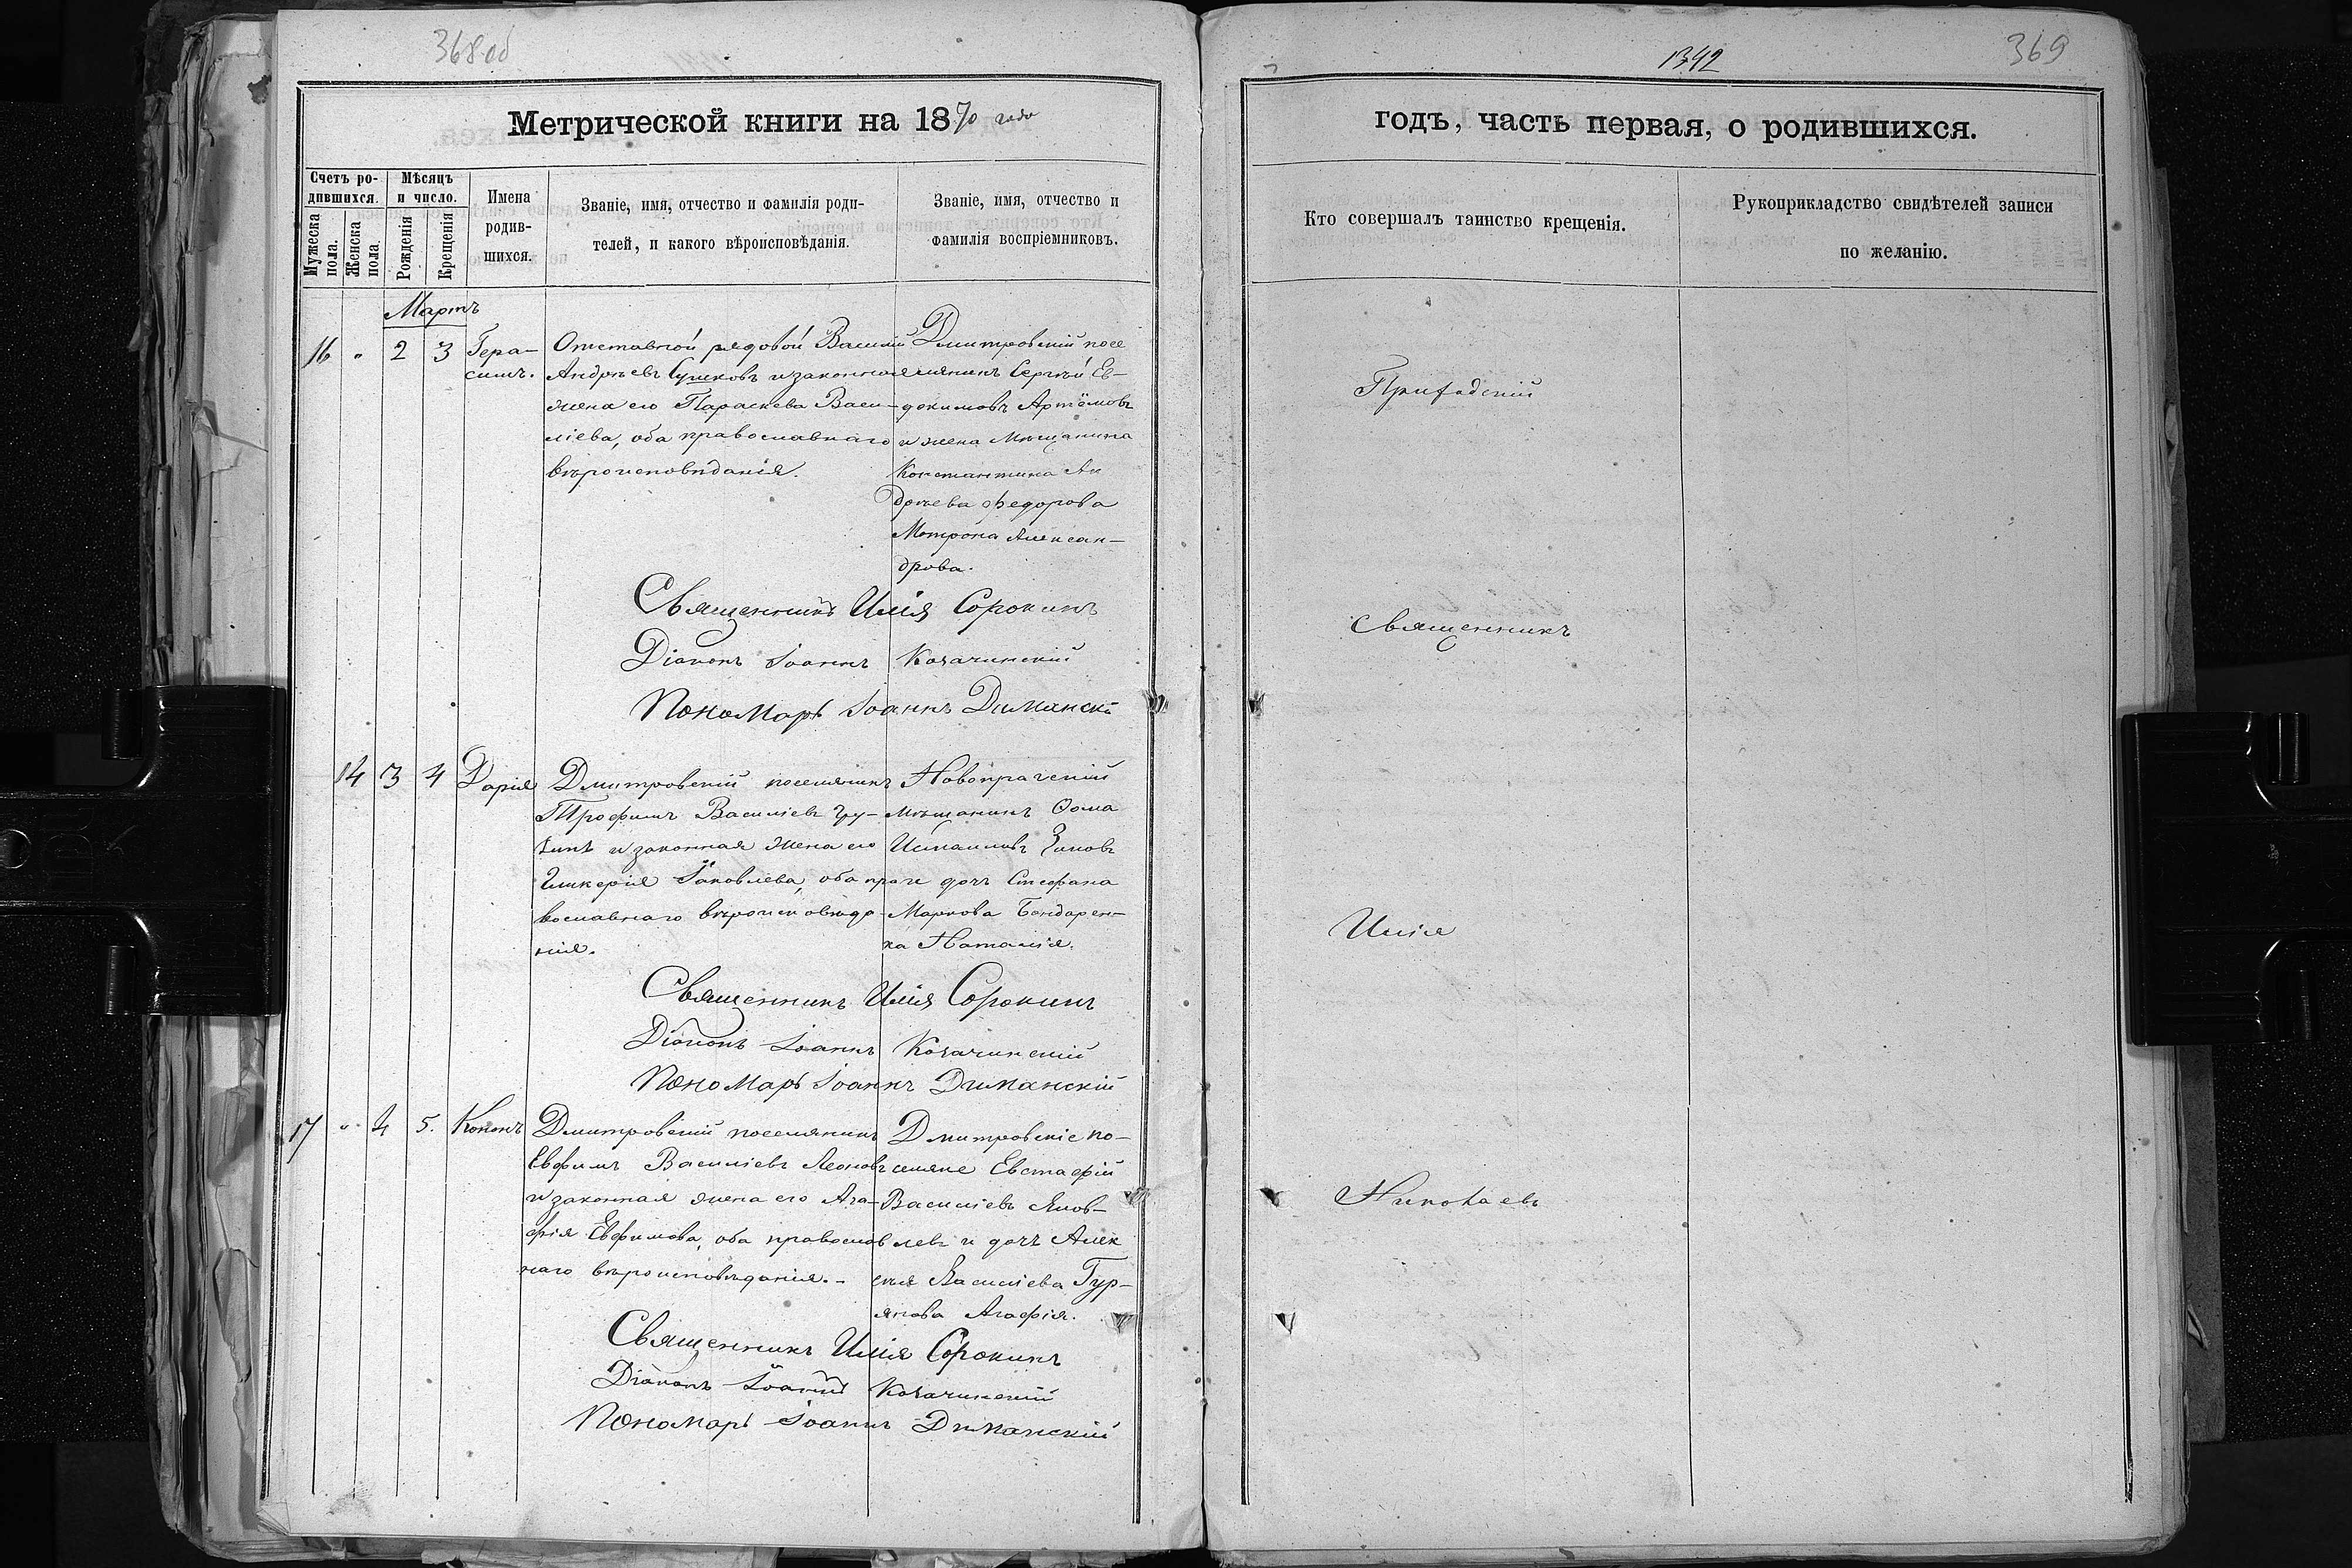 368 об
Метрической книги на 1870 года
Счетъ родившихся.
Мужеска пола.
Женска пола.
Мѣсяцъ и число.
Рожденія
Крещенія
Имена родившихся.
Званіе, имя, отчество и фамилія родителей, и какого вѣроисповѣданія.
Званіе, имя, отчество и фамилія воспріемниковъ.
Мартъ
16 " 2 3 Гера-
симъ.
Отставной рядовой Василій
Андреевъ Сушковъ и законная
жена его Параскева Васи-
ліева, оба православнаго
вѣроисповѣданія.
Дмитровскій посе
лянинъ Сергѣй Ев-
докимовъ Артёмовъ
и жена мѣщанина
Константина Ан
дреева Федорова
Матрона Алексан-
дрова.
Священникъ Илія Сорокинъ
Діаконъ Іоаннъ Козачинскій
Пономарь Іоаннъ Диманскій
14 3 4 Дарія
Дмитровскій поселянинъ
Трофимъ Василіевъ
и законная жена его
Гликерія Іаковлева, оба пра
вославнаго вѣроисповѣда-
нія.
Новопражскій
мѣщанинъ Ѳома
Исмаиловъ Зиновъ
и дочь Стефана
Маркова Бондарен-
ка Наталія.
Священникъ Илія Сорокинъ
Діаконъ Іоаннъ Козачинскій
Пономарь Іоаннъ Диманскій
17 " 4 5. Кононъ
Дмитровскій поселянинъ
Евфимъ Василіевъ Леоновъ
и законная жена его Ага-
фія Евфимова, оба православ
наго вѣроисповѣданія.-
Дмитровскіе по-
селяне Евстафій
Василіевъ Яков-
левъ и дочь Алек
сѣя Василіева Гур-
янова Агафія.
Священникъ Илія Сорокинъ
Діаконъ Іоаннъ Козачинскій
Пономарь Іоаннъ Диманскій
1342
369
годъ, часть первая, о родившихся.
Кто совершалъ таинство крещенія.
Рукоприкладство свидѣтелей записи
по желанію.
Приходскій
Священникъ
Илія
Николаевъ